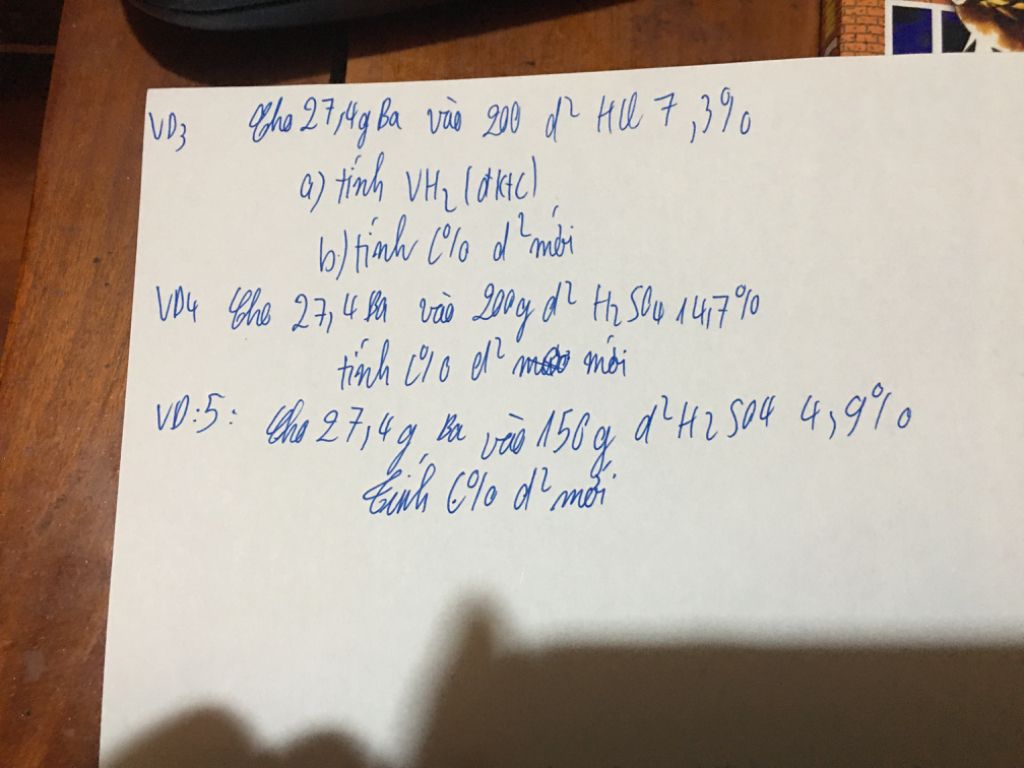 VD3 Cho 27,4g Ba vào 200 d² HCl 7,3%
a) tính VH₂ (đktc)
b) tính C% d² mới
VD4 Cho 27,4 Ba vào 200g d² H₂SO₄ 14,7%
tính C% d² mới
VD:5: Cho 27,4g Ba vào 150g d² H₂SO4 4,9%
tính C% d² mới